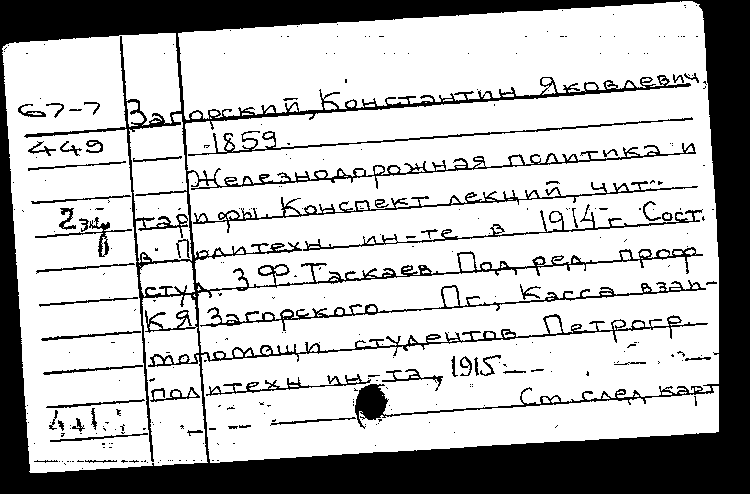 67-7 Загорский, Константин Яковлевич,
449 1859.
Железнодорожная политика и
2 экз тарифы. Конспект лекций, чит.
в Политехн. ин-те в 1914 г. Сост.
студ. З.Ф. Таскаев. Под ред. проф
К.Я. Загорского. Пг., Касса взаи-
мопомощи студентов Петрогр.
политехн ин-та, 1915.
См. след карт